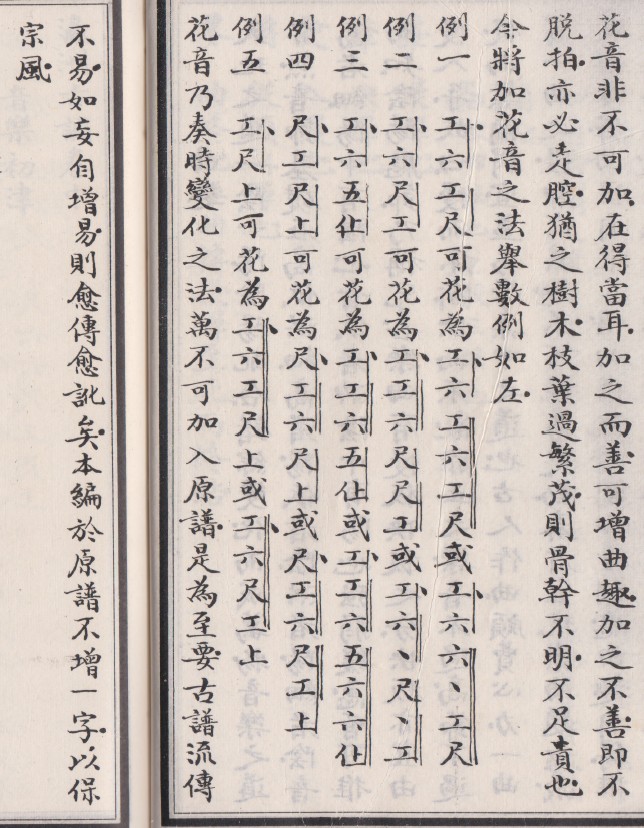 花音非不可加。在得當耳。加之而善。可增曲趣。加之不善。即不
脱拍。亦必走腔。猶之樹木。枝葉過繁茂。則骨幹不明。不足貴也。
今將加花音之法。舉數例如左。
例一 工六工尺可花為工六工六工尺或工六丶工尺
例二 工六尺工可花為工工六尺尺工或工六丶尺丶工
例三 工六五仩可花為工工六五仩或工工六五六六仩
例四 尺工尺上可花為尺工六尺上或尺工六尺工上
例五 工尺上可花為工六工尺上或工六尺工上
花音乃奏時變化之法。萬不可加入原譜。是為至要。古譜流傳
不易。如妄自增易。則愈傳愈訛矣。本編於原譜不增一字。以保
宗風。